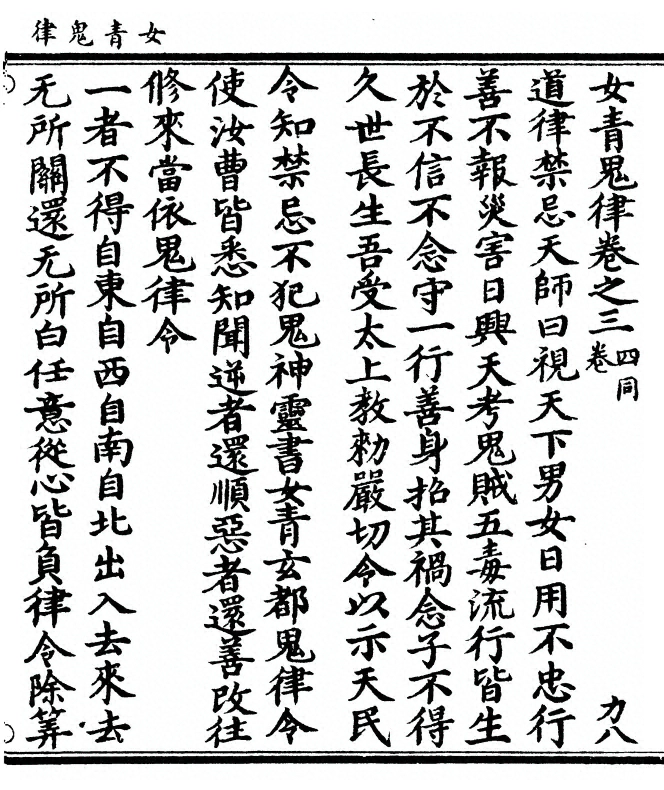 女青鬼律
女青鬼律卷之三 四同卷 力八
道律禁忌天師曰視天下男女日用不忠行
善不報災害日興天考鬼賊五毒流行皆生
於不信不念守一行善身招其禍念子不得
久世長生吾受太上教勑嚴切令以示天民
令知禁忌不犯鬼神靈書女青玄都鬼律令
使汝曹皆悉知聞逆者還順惡者還善改往
修來當依鬼律令
一者不得自東自西自南自北出入去來去
无所關還无所白任意從心皆負律令除筭